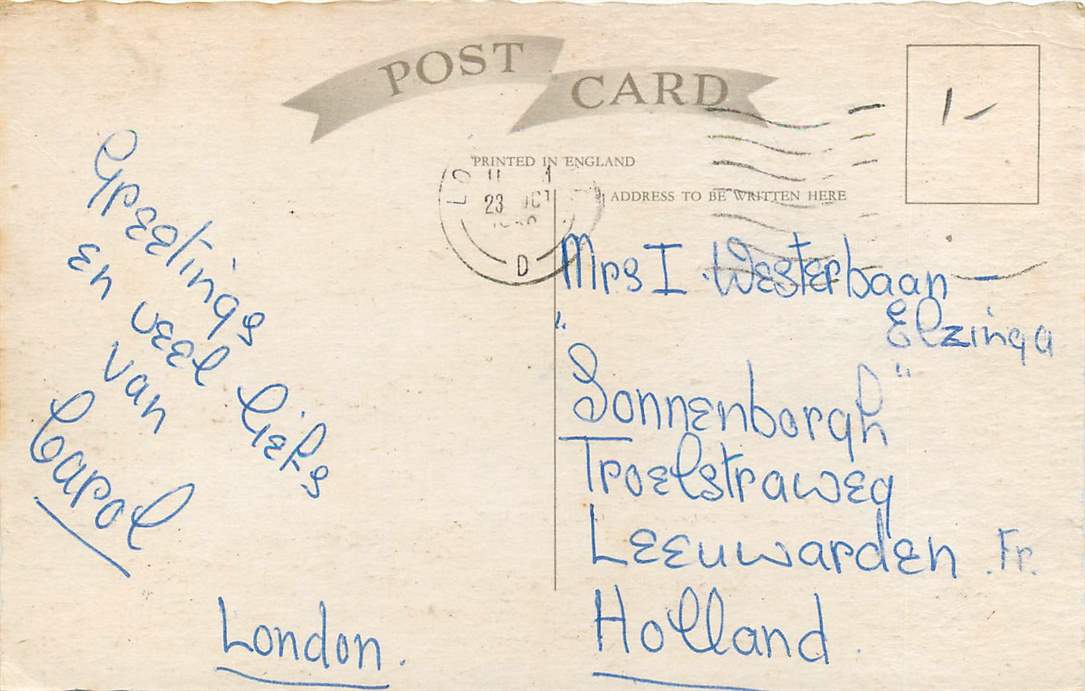 POST CARD
PRINTED IN ENGLAND
ADDRESS TO BE WRITTEN HERE
23 OCT
D
1-
Greetings
en veel liefs
van
Carol
London.
Mrs I. Westerbaan-
Elzinga
"Sonnenborgh"
Troelstraweg
Leeuwarden. Fr.
Holland.